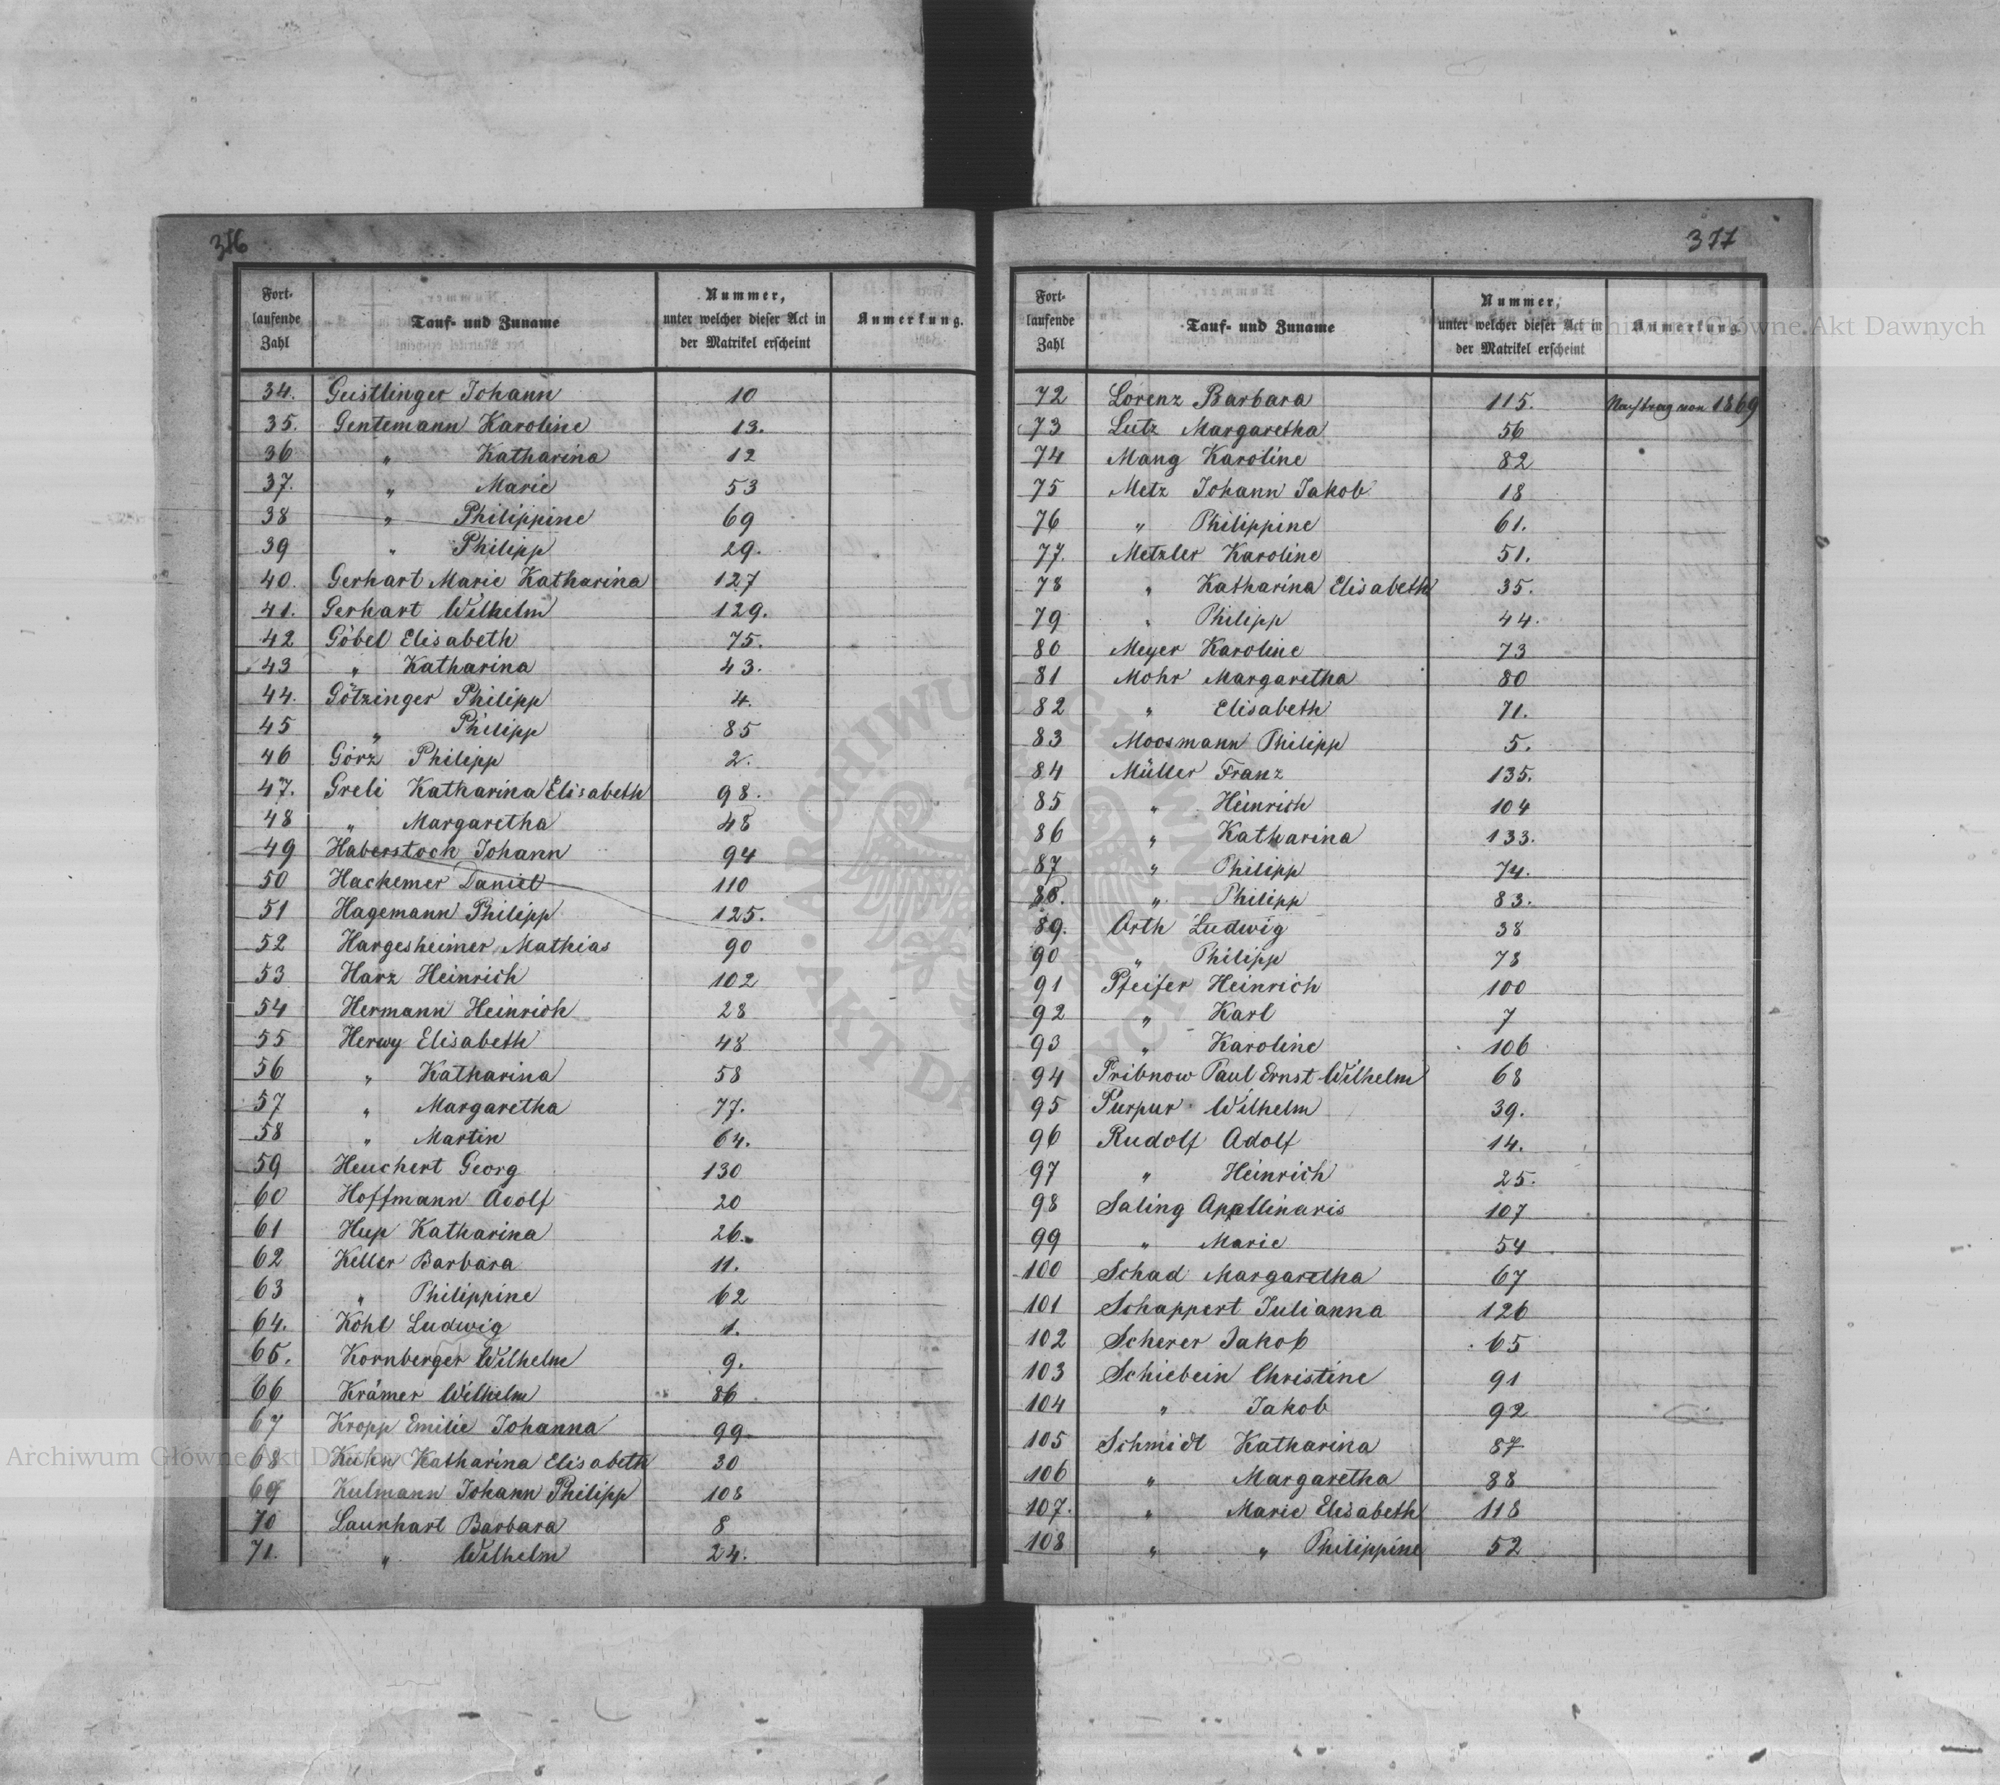 376
Fort-
laufende
Zahl
Tauf- und Zuname
Nummer,
unter welcher dieser Act in
der Matrikel erscheint
Anmerkung.
34. Geistlinger Johann 10
35. Gentemann Karoline 13.
36 " Katharina 12
37. " Marie 53
38 " Philippine 69
39 " Philipp 29.
40. Gerhart Marie Katharina 127
41. Gerhart Wilhelm 129.
42 Göbel Elisabeth 75.
43 " Katharina 43.
44. Götzinger Philipp 4.
45 " Philipp 85
46 Görz Philipp 2.
47. Greli Katharina Elisabeth 98.
48 " Margaretha 48
49 Haberstock Johann 94
50 Hackemer Daniel 110
51 Hagemann Philipp 125.
52 Hargesheimer Mathias 90
53 Harz Heinrich 102
54 Hermann Heinrich 28
55 Herwy Elisabeth 48
56 " Katharina 58
57 " Margaretha 77.
58 " Martin 64.
59 Heuchert Georg 130
60 Hoffmann Adolf 20
61 Hup Katharina 26.
62 Keller Barbara 11.
63 " Philippine 62
64. Köhl Ludwig 1.
65. Kornberger Wilhelm 9.
66 Krämer Wilhelm 86
67 Kropp Emilie Johanna 99
68 Kuhn Katharina Elisabeth 30
69 Kulmann Johann Philipp 108
70 Launhart Barbara 8
71. " Wilhelm 24.
377
Fort-
laufende
Zahl
Tauf- und Zuname
Nummer,
unter welcher dieser Act in
der Matrikel erscheint
Anmerkung.
72 Lorenz Barbara 115. Nachtrag von 1869
73 Lutz Margaretha 56
74 Mang Karoline 82
75 Metz Johann Jakob 18
76 " Philippine 61.
77. Metzler Karoline 51.
78 " Katharina Elisabeth 35.
79 " Philipp 44.
80 Meyer Karoline 73
81 Mohr Margaretha 80
82 " Elisabeth 71.
83 Moosmann Philipp 5.
84 Müller Franz 135.
85 " Heinrich 104
86 " Katharina 133.
87 " Philipp 74.
88. " Philipp 83.
89. Orth Ludwig 38
90 " Philipp 78
91 Pfeifer Heinrich 100
92 " Karl 7
93 " Karoline 106
94 Pribnow Paul Ernst Wilhelm 68
95 Purpur Wilhelm 39.
96 Rudolf Adolf 14.
97 " Heinrich 25.
98 Saling Appllinaris 107
99 " Marie 54
100 Schad Margaretha 67
101 Schappert Julianna 126
102 Scherer Jakob 65
103 Schiebein Christine 91
104 " Jakob 92
105 Schmidt Katharina 87
106 " Margaretha 88
107. " Marie Elisabeth 118
108 " " Philippine 52
Archiwum Główne Akt Dawnych
Archiwum Główne Akt Dawnych
ARCHIWUM GŁÓWNE · AKT DAWNYCH ·